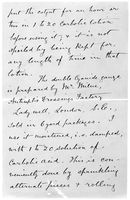 put the output for an hour or
two in 1 to 20 Carbolic lotion
before using it; & it is not
spoiled by being kept for
any length of time in that
lotion.
The double Cyanide gauze
is prepared by Mr. Milne,
Antiseptic Dressings Factory
Ladywell, London S.E.
sold in 6 yard packages. I
use it moistened, i.e. damped,
with 1 to 20 solution of
Carbolic acid. This is con-
veniently done by sprinkling
alternate pieces & rolling